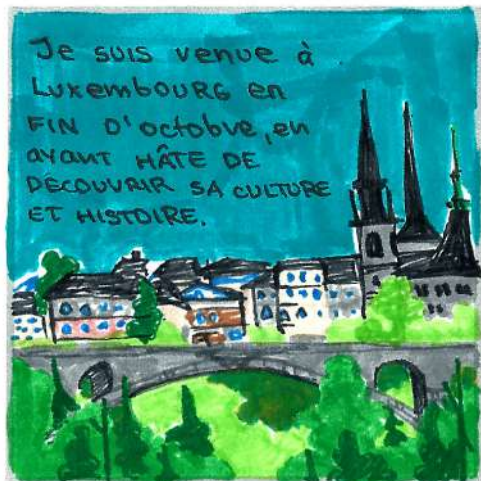 Je suis venue à
Luxembourg en
FIN D'octobre, en
ayant HÂTE DE
DÉCOUVRIR SA CULTURE
ET HISTOIRE.